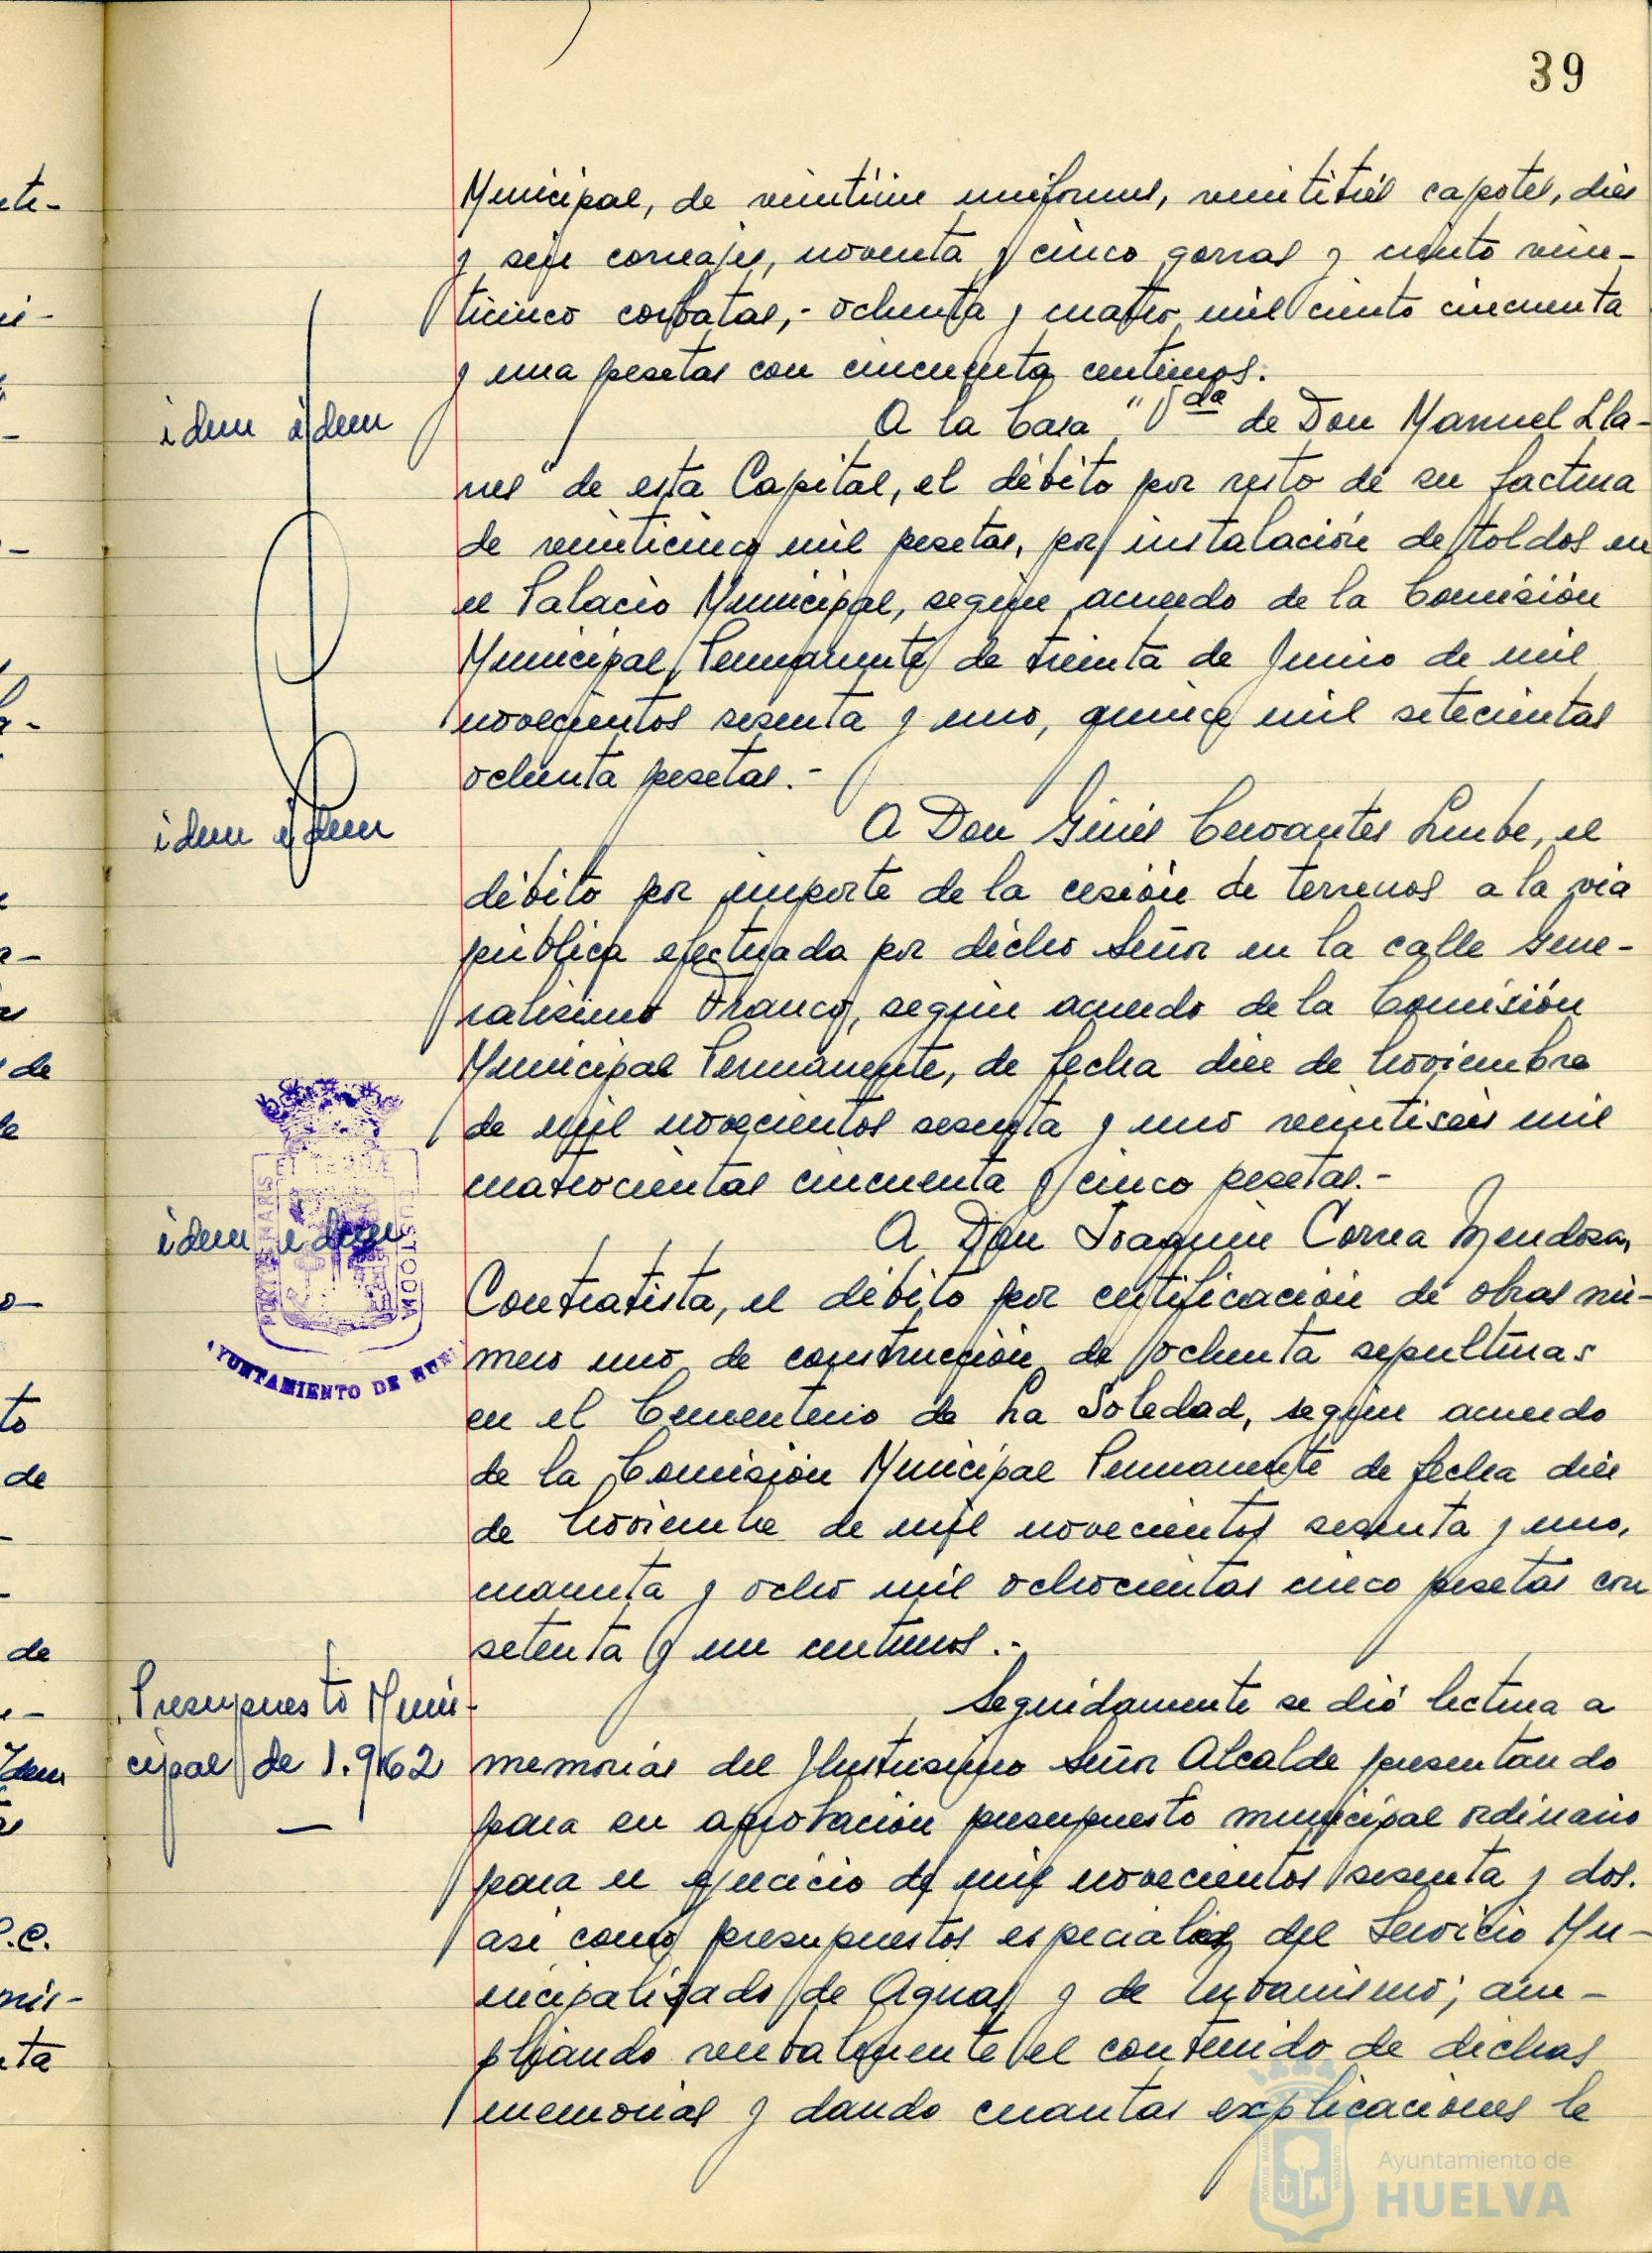 39
Municipal, de veintiún uniformes, veintitrés capotes, diez
y seis correajes, noventa y cinco gorras y ciento vein-
ticinco corbatas,- ochenta y cuatro mil ciento cincuenta
y una pesetas con cincuenta centimos.
idem idem
A la Casa "Vda de Don Manuel Lla-
nes" de esta Capital, el débito por resto de su factura
de veinticinco mil pesetas, por instalación de toldos en
el Palacio Municipal, según acuerdo de la Comisión
Municipal Permanente de treinta de Junio de mil
novecientos sesenta y uno, quince mil setecientas
ochenta pesetas.-
idem idem
A Don Ginés Cervantes, el
débito por importe de la cesión de terrenos a la via
pública efectuada por dicho Señor en la calle Gene-
ralisimo Franco, según acuerdo de la Comisión
Municipal Permanente, de fecha diez de Noviembre
de mil novecientos sesenta y uno veintiseis mil
cuatrocientas cincuenta y cinco pesetas.-
idem idem
A Don Joaquin Correa Mendoza,
Contratista, el débito por certificación de obras nú-
mero uno de construcción de ochenta sepulturas
en el Cementerio de La Soledad, según acuerdo
de la Comisión Municipal Permanente de fecha diez
de Noviembre de mil novecientos sesenta y uno,
cuarenta y ocho mil ochocientas cinco pesetas con
setenta y un centimos.-
Presupuesto Muni-
cipal de 1.962
Seguidamente se dió lectura a
memorias del Ilustrisimo Señor Alcalde presentando
para su aprobación presupuesto municipal ordinario
para el ejercicio de mil novecientos sesenta y dos.
asi como presupuestos especiales del Servicio Mu-
nicipalizado de Aguas y de Urbanismo; am-
pliando verbalmente el contenido de dichas
memorias y dando cuantas explicaciones le
PORTUS MARIS ET TERRAE CUSTODIA
AYUNTAMIENTO DE HUE
Ayuntamiento de
HUELVA